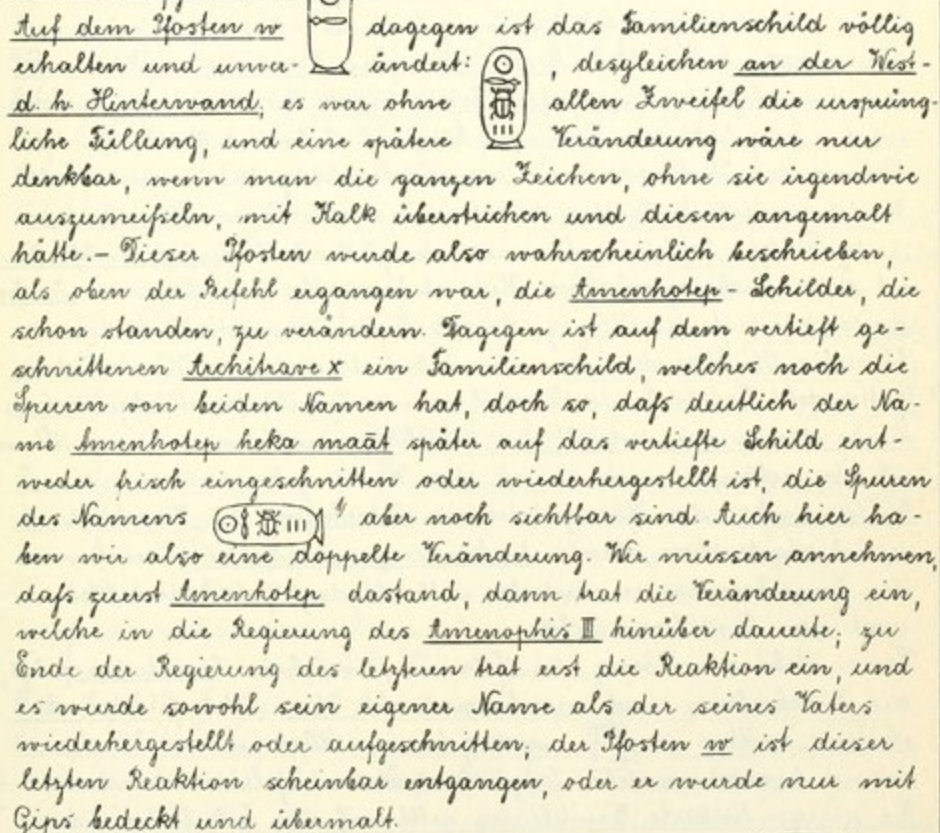 Auf dem Pfosten w dagegen ist das Familienschild völlig
erhalten und unver- ändert: , desgleichen an der West-
d. h. Hinterwand; es war ohne allen Zweifel die ursprüng-
liche Füllung, und eine spätere Veränderung wäre nur
denkbar, wenn man die ganzen Zeichen, ohne sie irgendwie
auszumeißeln, mit Kalk überstrichen und diesen angemalt
hätte.- Dieser Pfosten wurde also wahrscheinlich beschrieben,
als oben der Befehl ergangen war, die Amenhotep- Schilder, die
schon standen, zu verändern. Dagegen ist auf dem vertieft ge-
schnittenen Architrave x ein Familienschild, welches noch die
Spuren von beiden Namen hat, doch so, daß deutlich der Na-
me Amenhotep heka maāt später auf das vertiefte Schild ent-
weder frisch eingeschnitten oder wiederhergestellt ist, die Spuren
des Namens aber noch sichtbar sind. Auch hier ha-
ben wir also eine doppelte Veränderung. Wir müssen annehmen,
daß zuerst Amenhotep dastand, dann trat die Veränderung ein,
welche in die Regierung des Amenophis III hinüber dauerte; zu
Ende der Regierung des letzteren trat erst die Reaktion ein, und
es wurde sowohl sein eigener Name als der seines Vaters
wiederhergestellt oder aufgeschnitten; der Pfosten w ist dieser
letzten Reaktion scheinbar entgangen, oder er wurde nur mit
Gips bedeckt und übermalt.